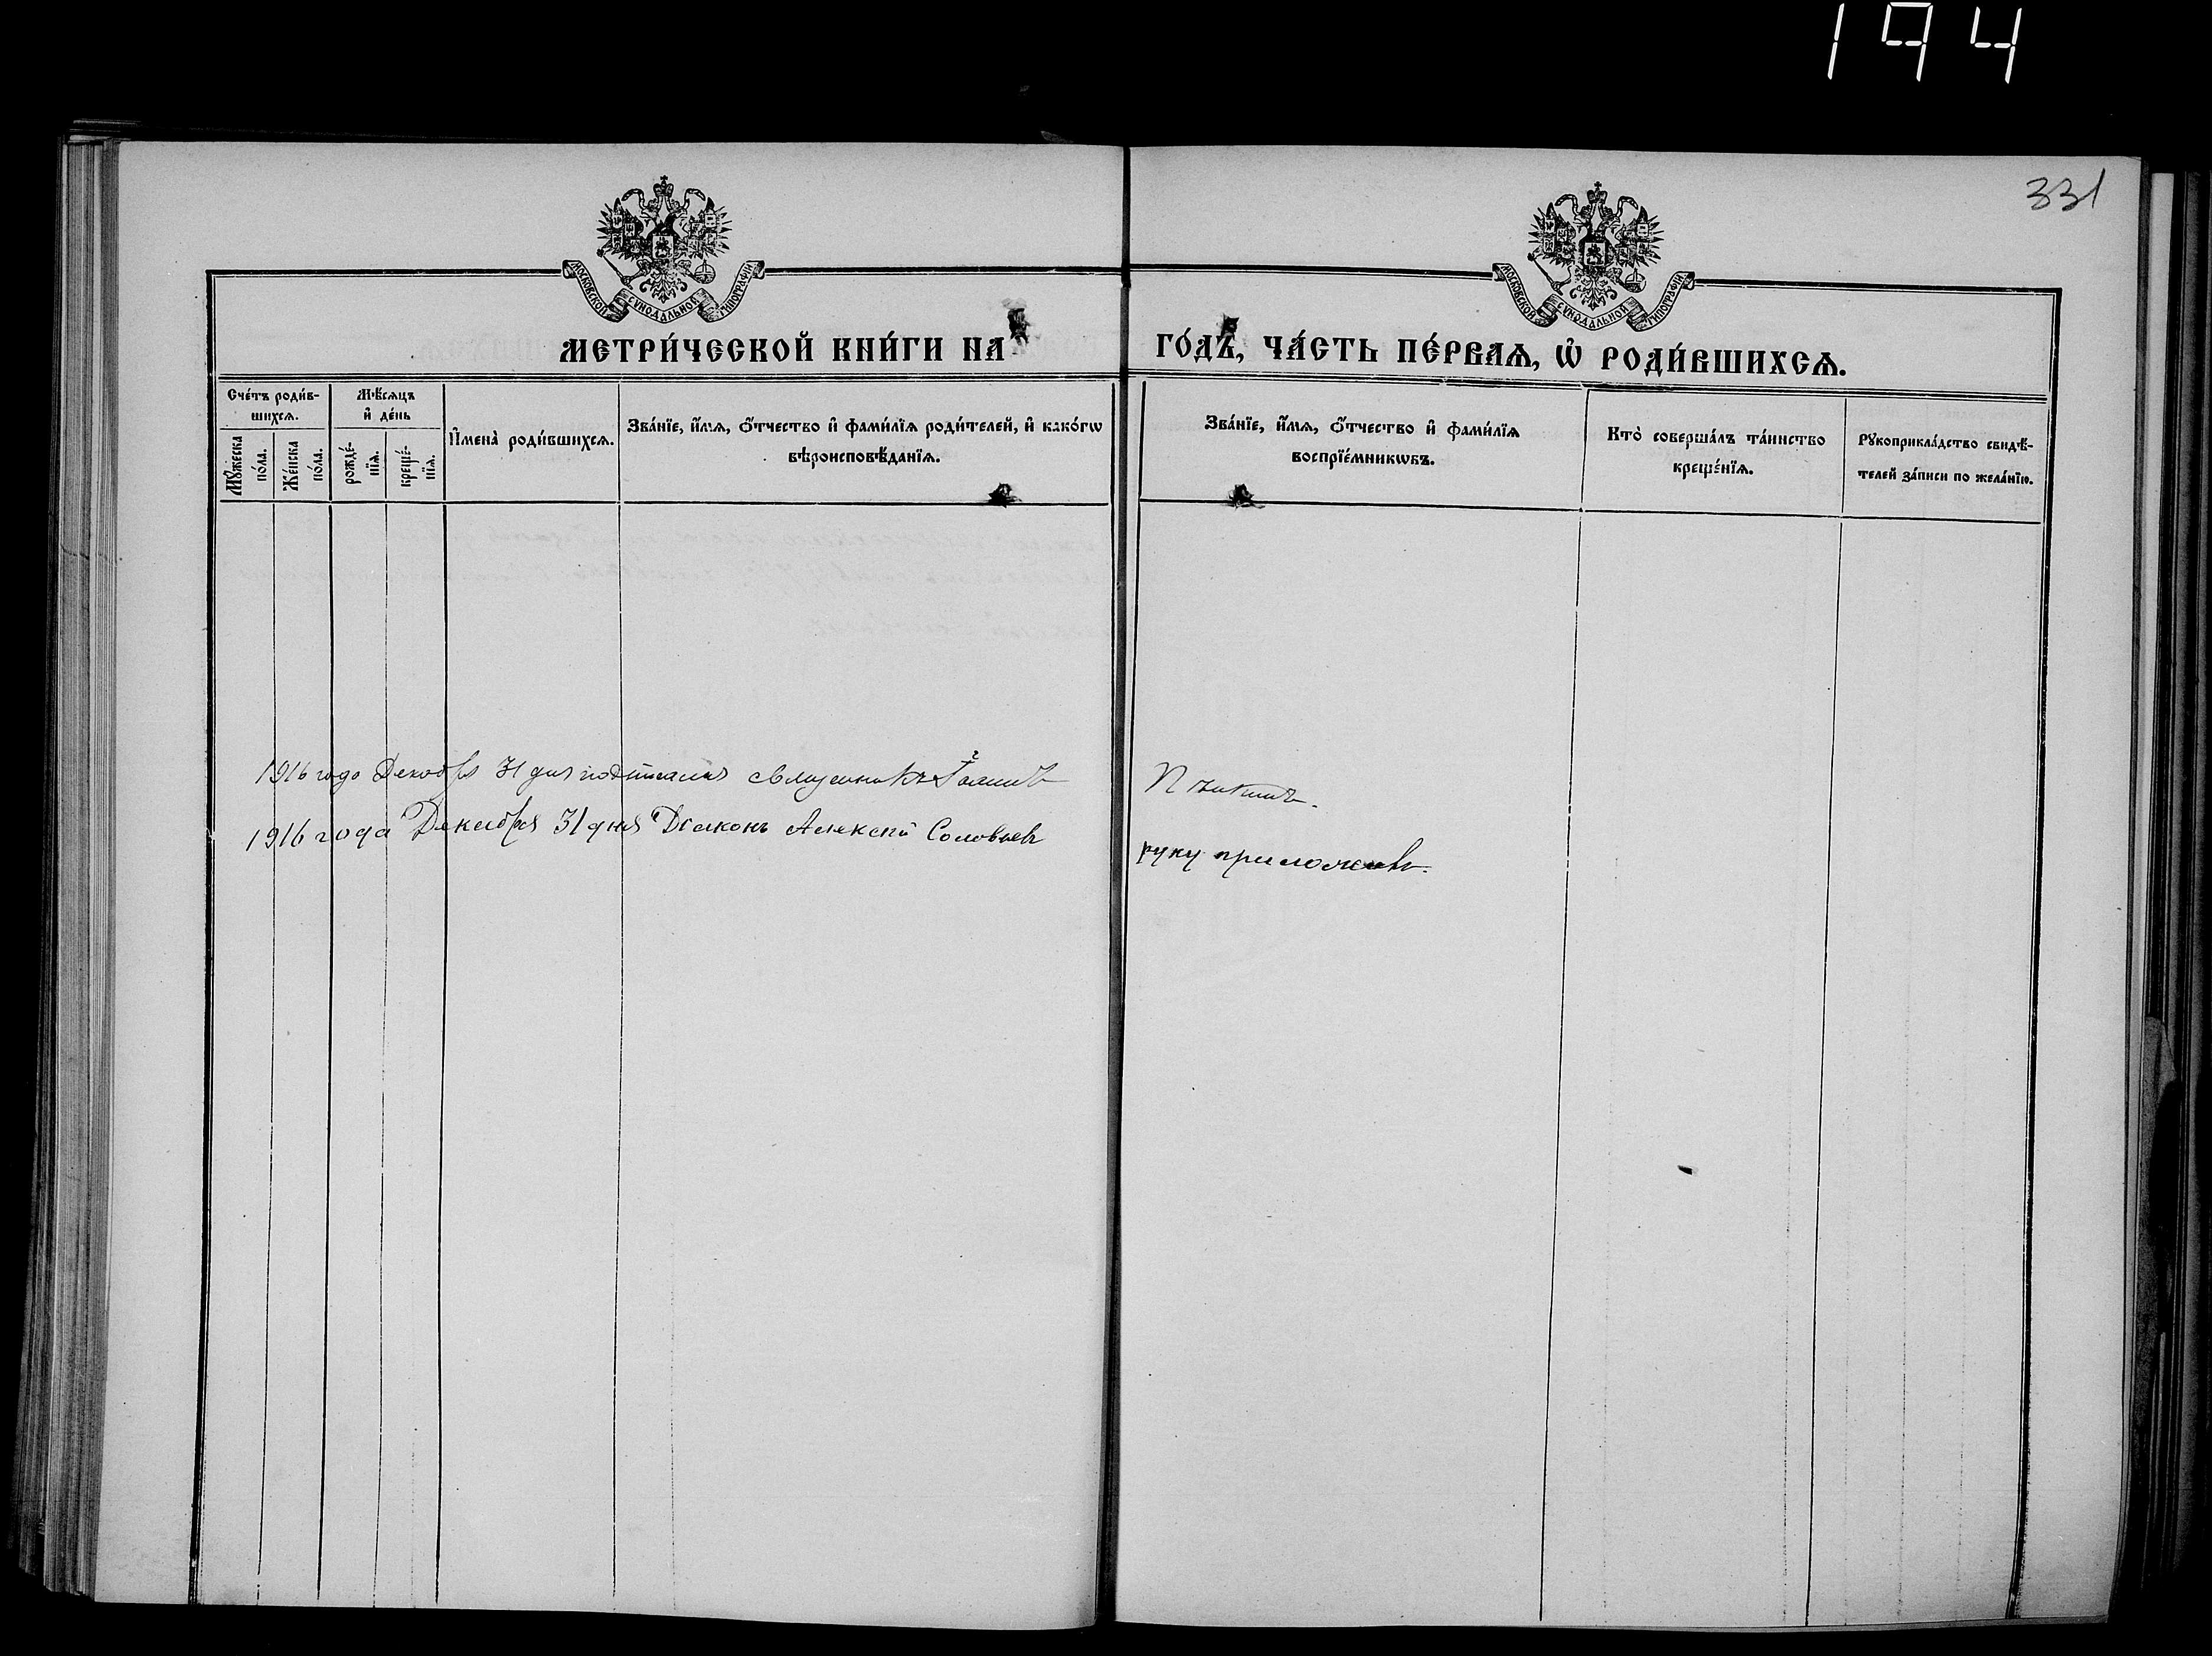 194
331
МОСКОВСКОЙ СУНОДАЛЬНОЙ ТИПОГРАФІИ
МОСКОВСКОЙ СУНОДАЛЬНОЙ ТИПОГРАФІИ
МЕТРИ́ЧЕСКОЙ КНИ́ГИ НА
ГО́ДЪ, ЧА́СТЬ ПЕ́РВАѦ, Ѽ РОДИ́ВШИХСѦ.
Сче́тъ роди́в-
шихсѧ.
Мꙋ́жеска
по́ла.
Же́нска
по́ла.
Мѣ́сѧцъ
и҆ де́нь
рожде́-
нїѧ.
креще́-
нїѧ.
И҆мена̀ роди́вшихсѧ.
Зва́нїе, и҆́мѧ, ѻ҆́тчество и҆ фами́лїѧ роди́телей, и҆ како́гѡ
вѣроисповѣ́данїѧ.
Зва́нїе, и҆́мѧ, ѻ҆́тчество и҆ фами́лїѧ
воспрїе́мникѡвъ.
Кто̀ соверша́лъ та́инство
креще́нїѧ.
Рꙋкоприкла́дство свидѣ́-
телей за́писи по жела́нїю.
1916 года Декабря 31 дня подписались священникъ Іоаннъ
1916 года Декабря 31 дня Діаконъ Алексій Соловьевъ
руку приложилъ.